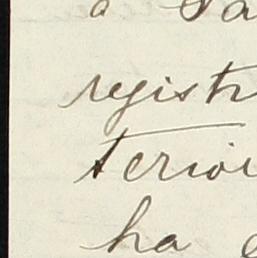 a Pa
registr
terior
ha